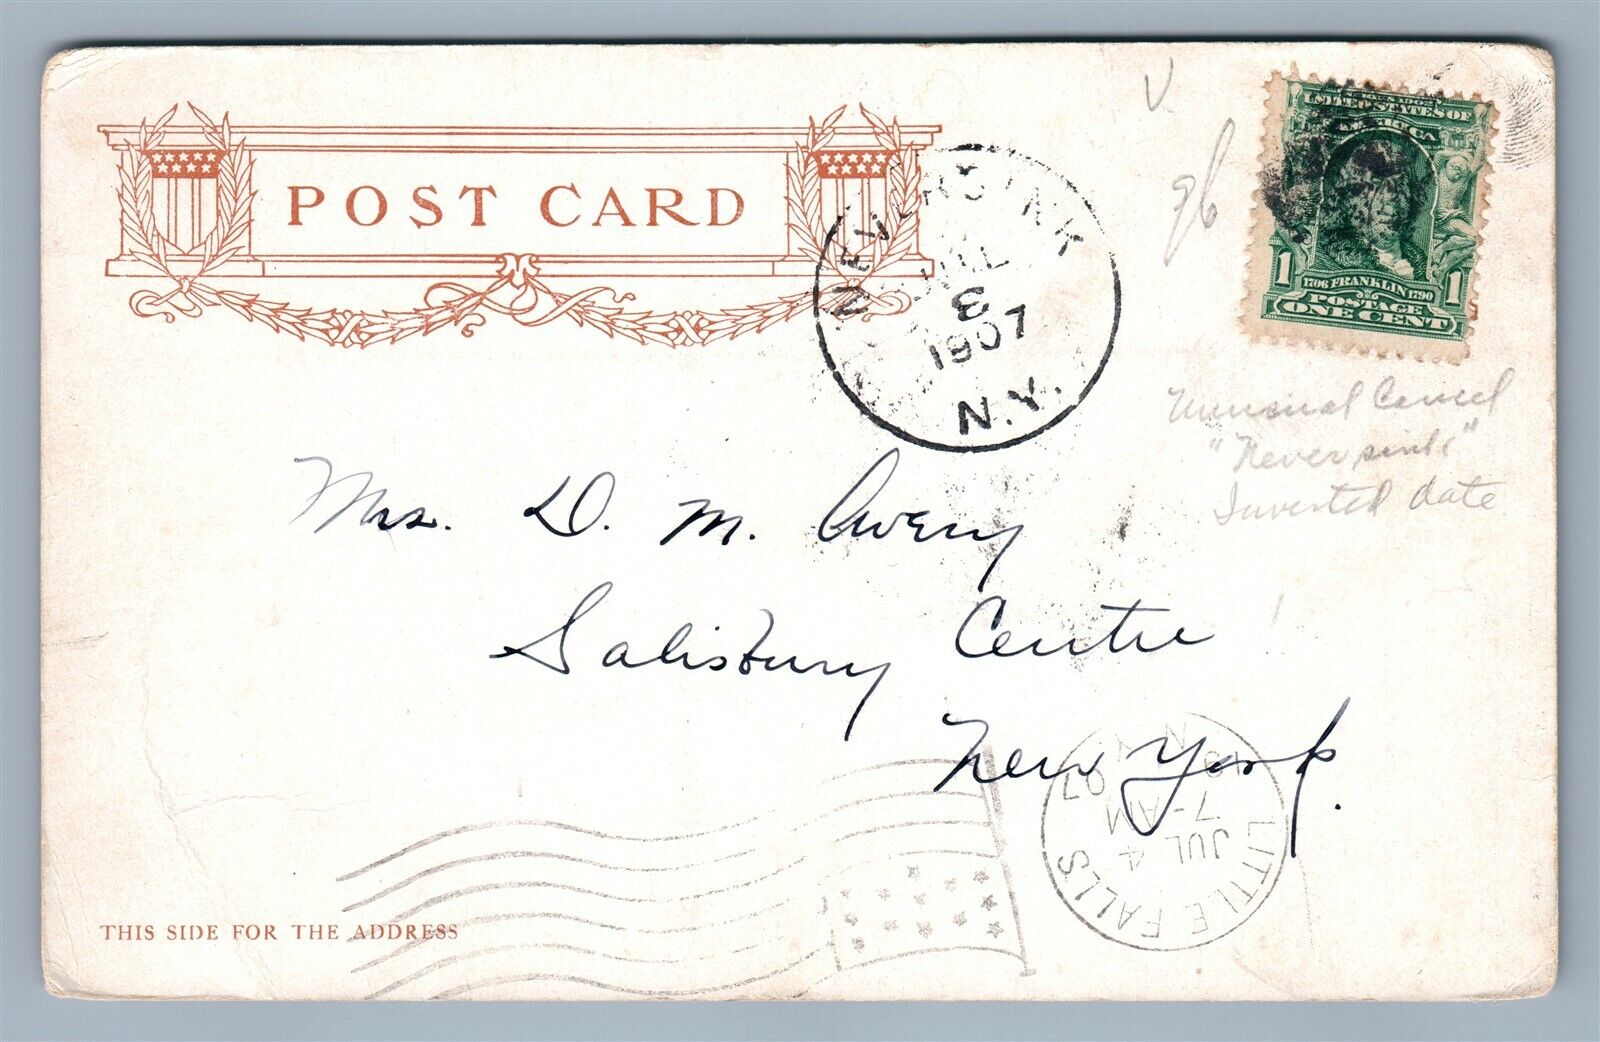 POST CARD
NEVERSINK
JUL
3
1907
N.Y.
SERIES 1902
UNITED STATES OF
AMERICA
1 1706 FRANKLIN 1790 1
POSTAGE
ONE CENT
V
96
Unusual Cancel
"Neversink"
Inverted date
Mrs. D. M. Avery
Salisbury Centre
New York.
LITTLE FALLS
JUL 4
7-AM
07
N.Y.
THIS SIDE FOR THE ADDRESS